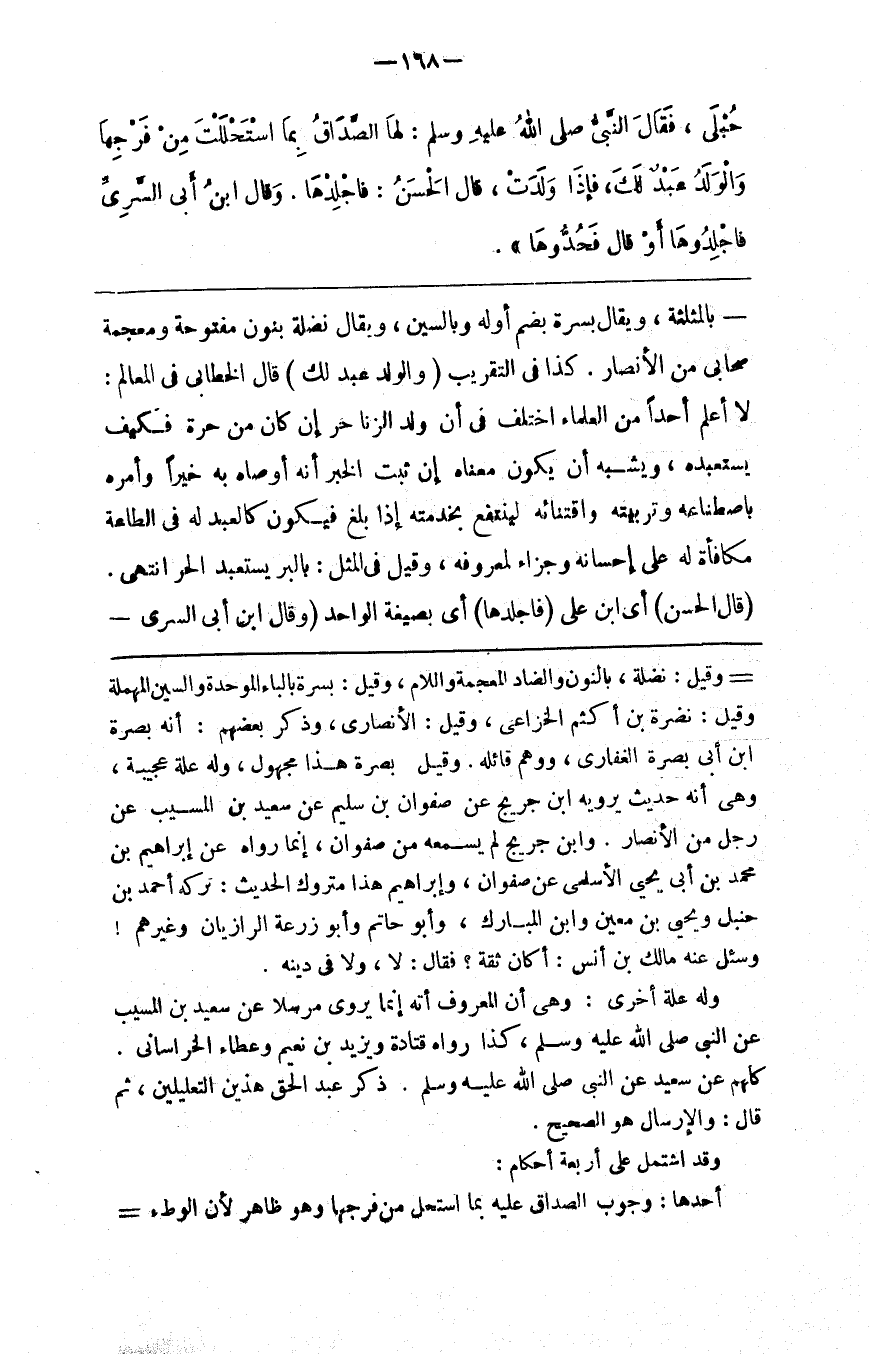 —١٦٨—
حُبْلَى ، فَقَالَ النَّبِيُّ صلى اللهُ عليهِ وسلم : لهَا الصَّدَاقُ بِمَا اسْتَحْلَلْتَ مِنْ فَرْجِهَا
وَالْوَلَدُ عَبْدٌ لَكَ، فإِذَا وَلَدَتْ ، قال الْحَسَنُ : فاجْلِدْهَا . وَقال ابنُ أَبى السَّرِىِّ
فاجْلِدُوهَا أَوْ قال فَحُدُّوهَا » .
— بالمثلثة ، ويقال بسرة بضم أوله وبالسين ، ويقال نضلة بنون مفتوحة ومعجمة
صحابى من الأنصار . كذا فى التقريب ( والولد عبد لك ) قال الخطابى فى المعالم :
لا أعلم أحداً من العلماء اختلف فى أن ولد الزنا حر إن كان من حرة فكيف
يستعبده ، ويشبه أن يكون معناه إن ثبت الخبر أنه أوصاه به خيراً وأمره
باصطناعه وتربيته واقتنائه لينتفع بخدمته إذا بلغ فيكون كالعبد له فى الطاعة
مكافأة له على إحسانه وجزاء لمعروفه ، وقيل فى المثل : بالبر يستعبد الحر انتهى .
(قال الحسن) أى ابن على (فاجلدها) أى بصيغة الواحد (وقال ابن أبى السرى —
= وقيل : نضلة ، بالنون والضاد المعجمة واللام ، وقيل : بسرة بالباء الموحدة والسين المهملة
وقيل : نضرة بن أكثم الخزاعى ، وقيل : الأنصارى ، وذكر بعضهم : أنه بصرة
ابن أبى بصرة الغفارى ، ووهم قائله . وقيل بصرة هذا مجهول ، وله علة عجيبة ،
وهى أنه حديث يرويه ابن جريج عن صفوان بن سليم عن سعيد بن المسيب عن
رجل من الأنصار . وابن جريج لم يسمعه من صفوان ، إنما رواه عن إبراهيم بن
محمد بن أبى يحيى الأسلمى عن صفوان ، وإبراهيم هذا متروك الحديث : تركه أحمد بن
حنبل ويحيى بن معين وابن المبارك ، وأبو حاتم وأبو زرعة الرازيان وغيرهم !
وسئل عنه مالك بن أنس : أكان ثقة ؟ فقال : لا ، ولا فى دينه .
وله علة أخرى : وهى أن المعروف أنه إنما يروى مرسلا عن سعيد بن المسيب
عن النبى صلى الله عليه وسلم ، كذا رواه قتادة ويزيد بن نعيم وعطاء الخراسانى .
كلهم عن سعيد عن النبى صلى الله عليه وسلم . ذكر عبد الحق هذين التعليلين ، ثم
قال : والإرسال هو الصحيح .
وقد اشتمل على أربعة أحكام :
أحدها : وجوب الصداق عليه بما استحل من فرجها وهو ظاهر لأن الوطء =